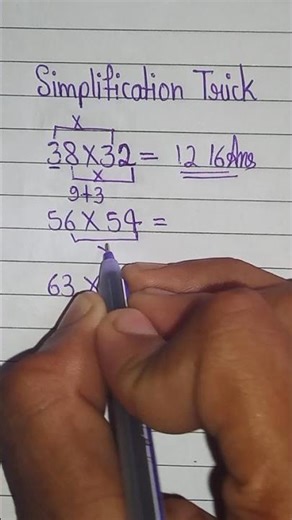 Simplification Trick
x
38 x 32 = 12 16 Ans
x
9+3
56 x 54 =
63 x